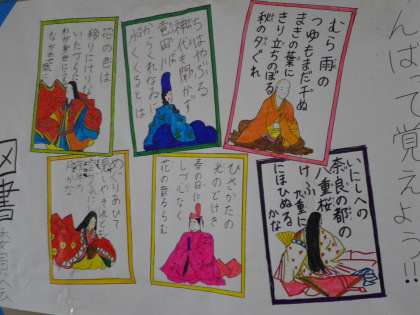 んはって覚えよう!!
むら雨の
つゆもまだ干ぬ
まきの葉に
きり立ちのぼる
秋の夕ぐれ
ちはやぶる
神代も聞かず
竜田川
からくれなゐに
水くくるとは
花の色は
移りにけりな
いたづらに
わが身世にふる
ながめせし
いにしへの
奈良の都の
八重桜
けふ九重に
にほひぬる
かな
ひさかたの
光のどけき
春の日に
しづ心なく
花の散るらむ
めぐりあひて
見しやそれとも
図書